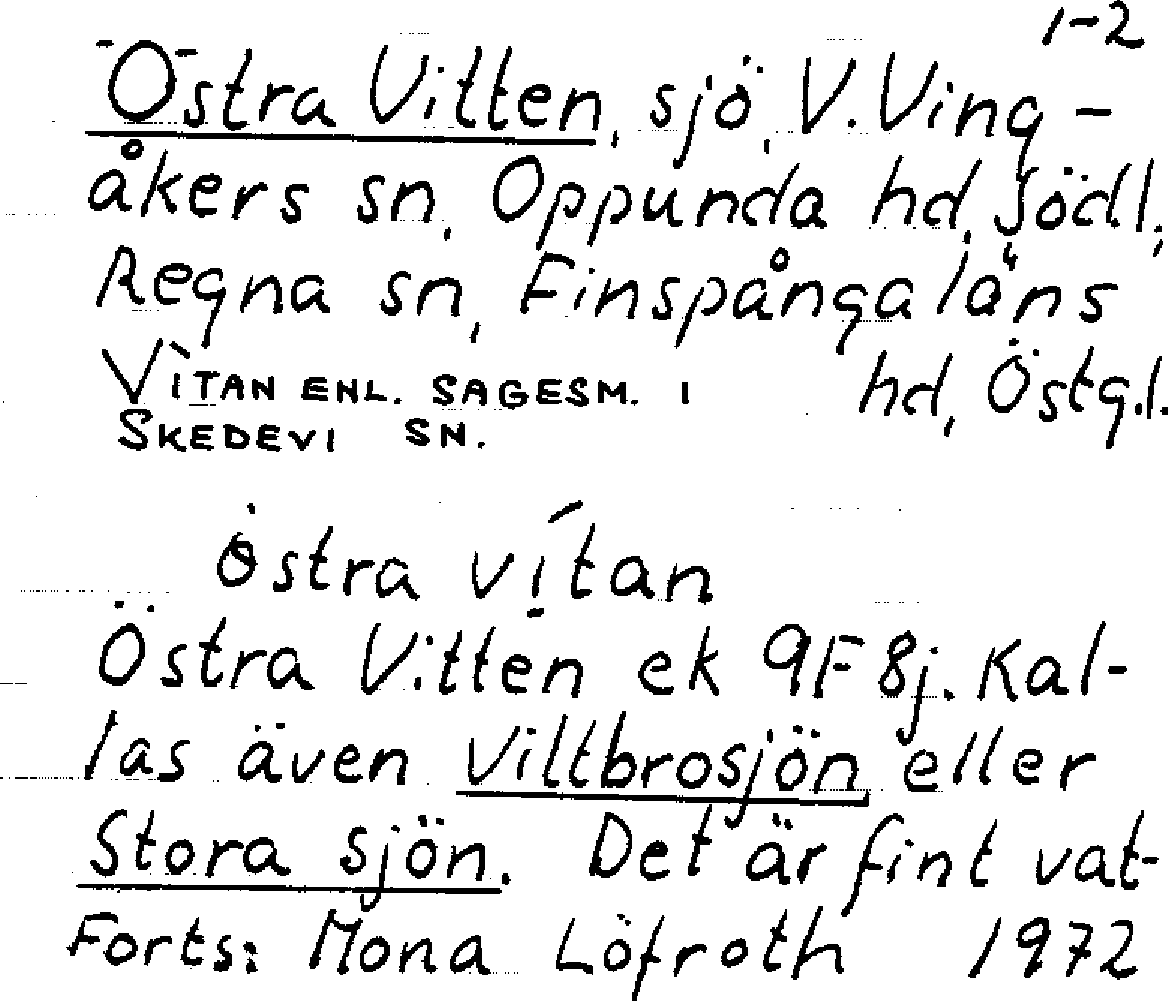 1-2
Östra Vitten, sjö, V. Ving-
åkers sn, Oppunda hd, Södl,
Regna sn, Finspångaläns
hd, Östg.l.
VÌTAN ENL. SAGESM. I
SKEDEVI SN.
östra vítan
Östra Vitten ek 9F 8j. Kal-
las även Viltbrosjön eller
Stora sjön. Det är fint vat-
Forts: Mona Löfroth 1972